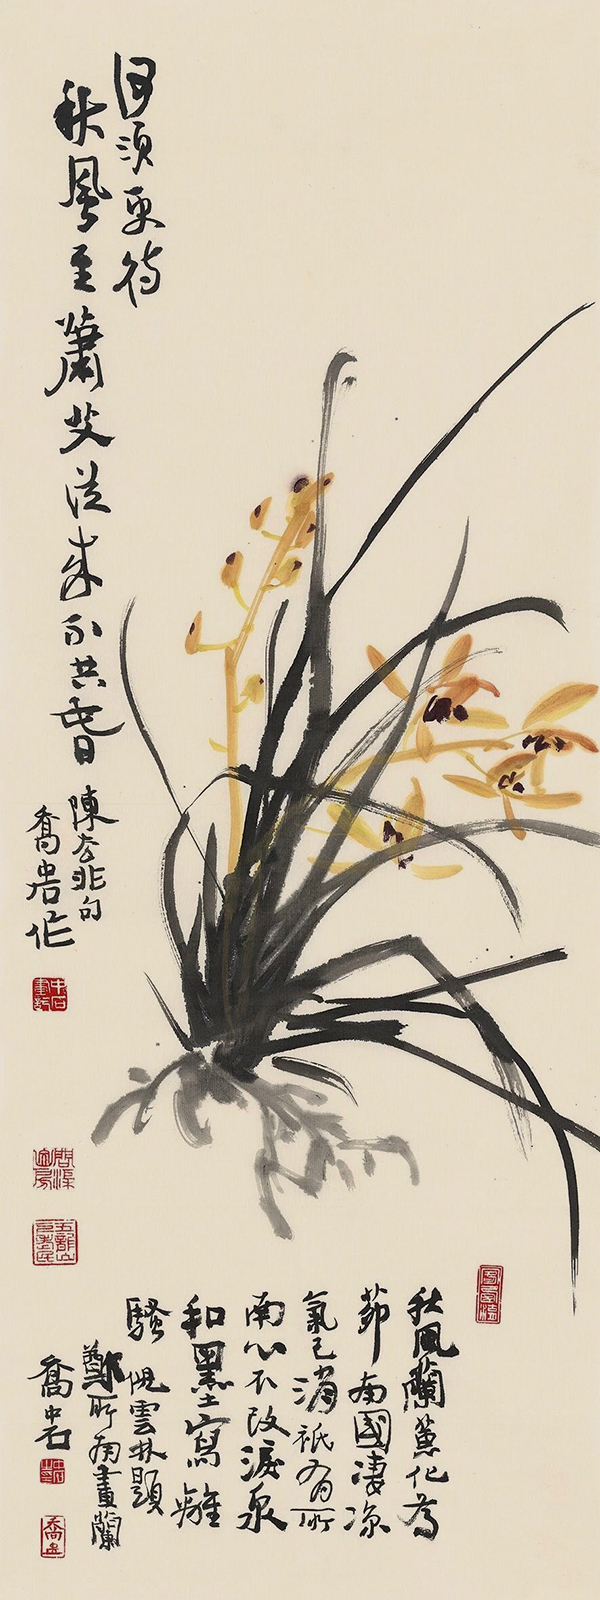 何須更待
秋風至蕭艾從來不共香
陳去非句
喬岩作
秋風蘭蕙化爲
茆南國淒涼
氣已消祇有所
南心不改淚泉
和墨寫離
騷倪雲林題
鄭所南畫蘭
喬岩